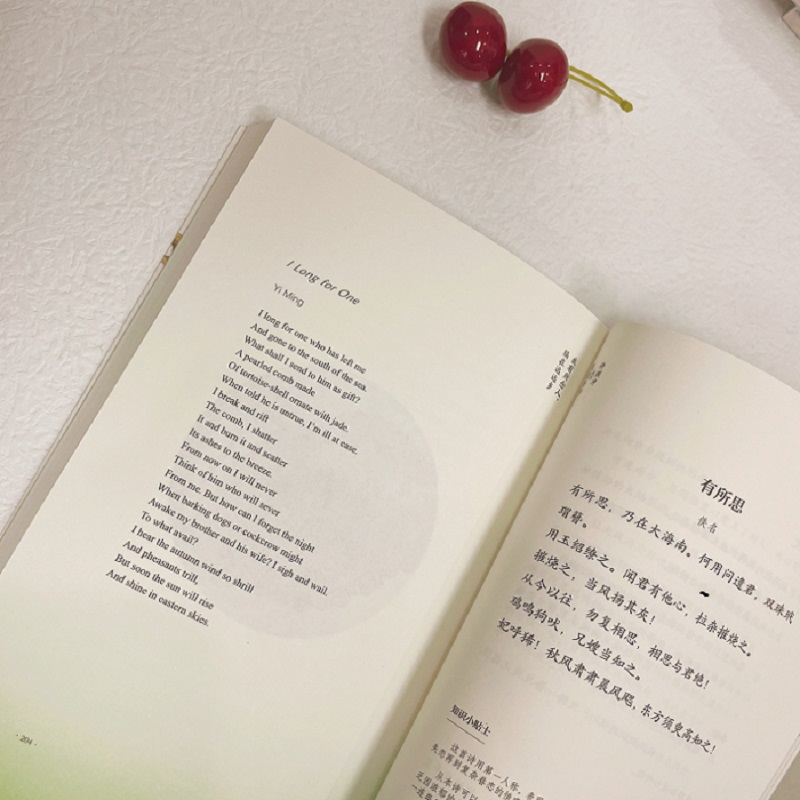 I Long for One
Yi Ming
I long for one who has left me
And gone to the south of the sea.
What shall I send to him as gift?
A pearled comb made
Of tortoise-shell ornate with jade.
When told he is untrue, I'm ill at ease.
I break and rift
The comb, I shatter
It and burn it and scatter
Its ashes to the breeze.
From now on I will never
Think of him who will sever
From me. But how can I forget the night
When barking dogs or cockcrow might
Awake my brother and his wife? I sigh and wail.
To what avail?
I hear the autumn wind so shrill
And pheasants trill,
But soon the sun will rise
And shine in eastern skies.
· 204 ·
有所思
佚名
有所思，乃在大海南。何用问遗君，双珠玳
瑁簪。
用玉绍缭之。闻君有他心，拉杂摧烧之。
摧烧之，当风扬其灰！
从今以往，勿复相思，相思与君绝！
鸡鸣狗吠，兄嫂当知之。
妃呼狶！秋风肃肃晨风飔，东方须臾高知之！
知识小贴士
这首诗用第一人称，